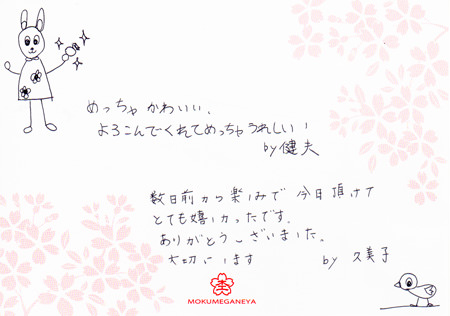 めっちゃかわいい、
よろこんでくれてめっちゃうれしい！
by健夫
数日前から楽しみで今日頂けて
とても嬉しかったです。
ありがとうございました。
大切にします
by 久美子
MOKUMEGANEYA